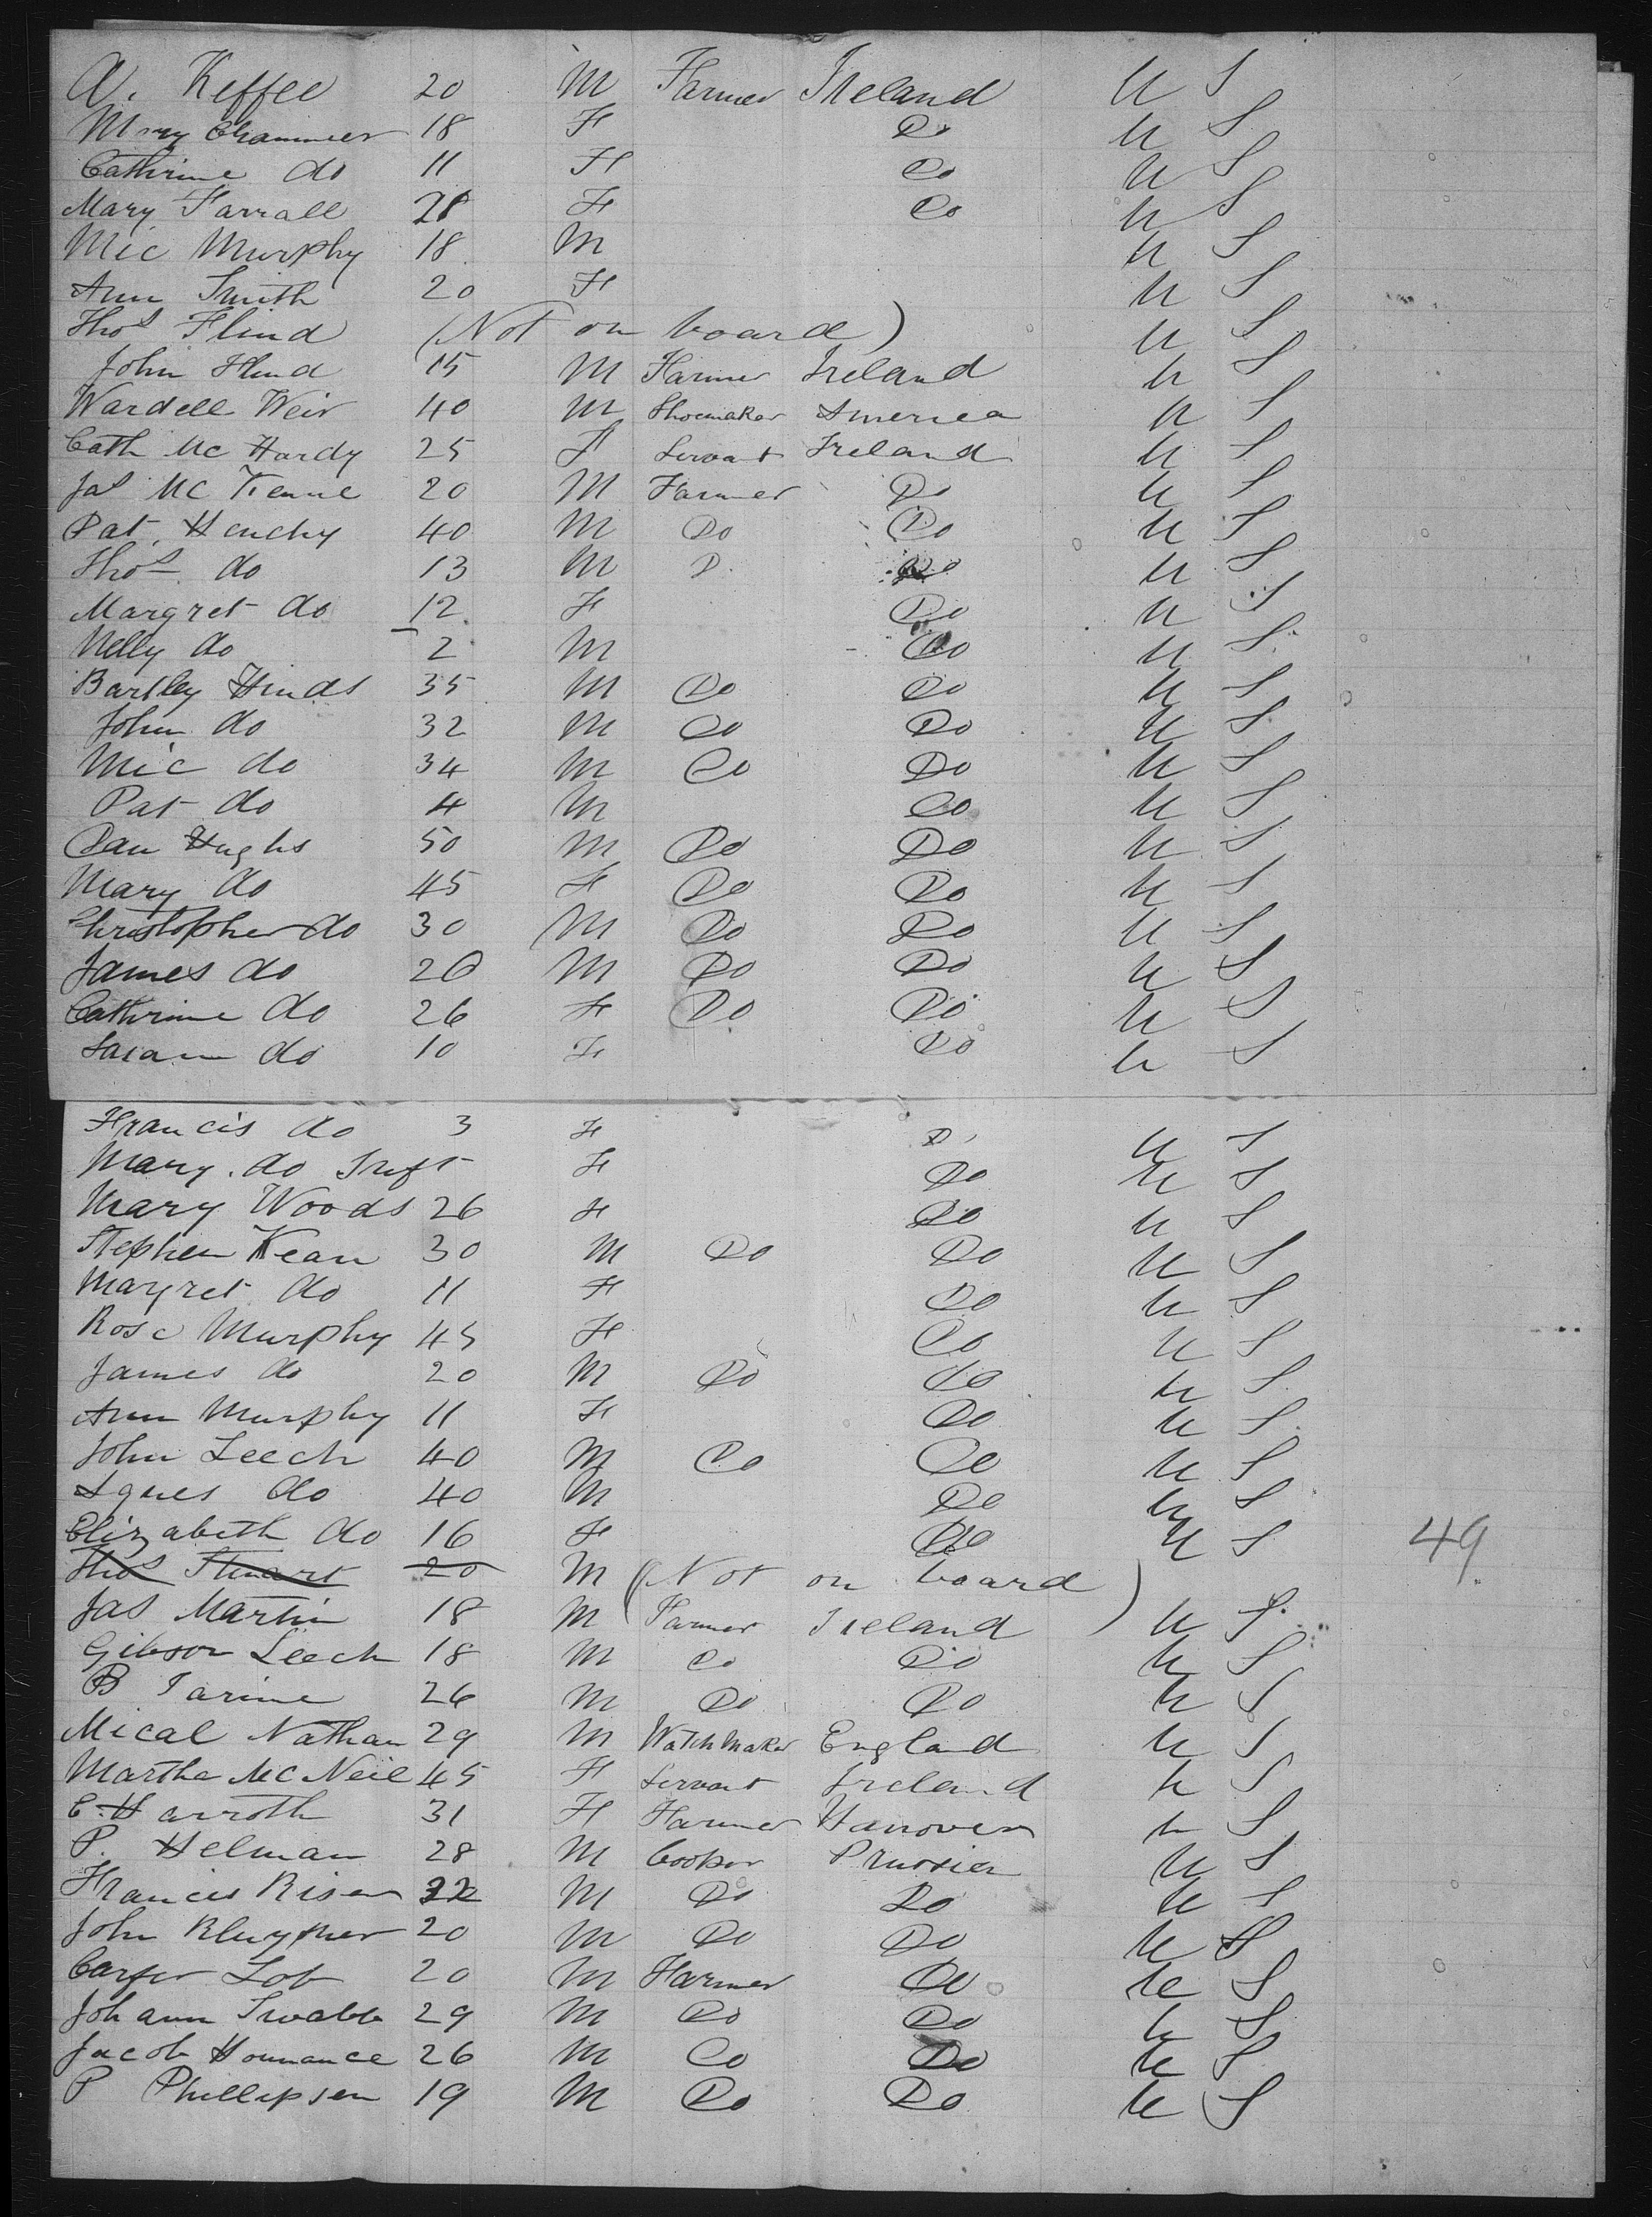 A. Keffee 20 M Farmer Ireland U S
Mary Chammier 18 F Do U S
Cathrine do 11 F Do U S
Mary Farrall 28 F Do U S
Mic Murphy 18 M U S
Ann Smith 20 F U S
Thos Flind (Not on board) U S
John Flind 15 M Farmer Ireland U S
Wardell Weir 40 M Shoemaker America U S
Cath Mc Hardy 25 F Servant Ireland U S
Jas Mc Kenne 20 M Farmer Do U S
Pat. Henchy 40 M Do Do U S
Thos do 13 M D. Do U S
Margret do 12 F Do U S
Nelly do 2 M Do U S
Bartley Hinds 35 M Do Do U S
John do 32 M Do Do U S
Mic do 34 M Do Do U S
Pat do 4 M Do U S
Dan Hughs 50 M Do Do U S
Mary do 45 F Do Do U S
Christopher do 30 M Do Do U S
James do 20 M Do Do U S
Cathrine do 26 F Do Do U S
Saiam do 10 F Do U S
Francis do 3 F D U S
Mary. do Inft F Do U S
Mary Woods 26 F Do U S
Stephen Kean 30 M Do Do U S
Margret do 11 F Do U S
Rose Murphy 45 F Do U S
James do 20 M Do Do U S
Ann Murphy 11 F Do U S
John Leech 40 M Do Do U S
Agnes do 40 M Do U S
Elizabeth do 16 F Do U S 49
Thos Stuart 20 M (Not on board)
Jas Martin 18 M Farmer Ireland U S
Gibson Leech 18 M Do Do U S
B 26 M Do Do U S
Mical Nathan 29 M Watchmaker England U S
Martha McNeil 45 F Servant Ireland U S
C. Harroth 31 F Farmer Hanover U S
P. Helman 28 M Cooper Prussia U S
Francis Riser 32 M Do Do U S
John 20 M Do Do U S
Casper Lob 20 M Farmer Do U S
Johann Swabb 29 M Do Do U S
Jacob Hounance 26 M Do Do U S
P Phillipsen 19 M Do Do U S